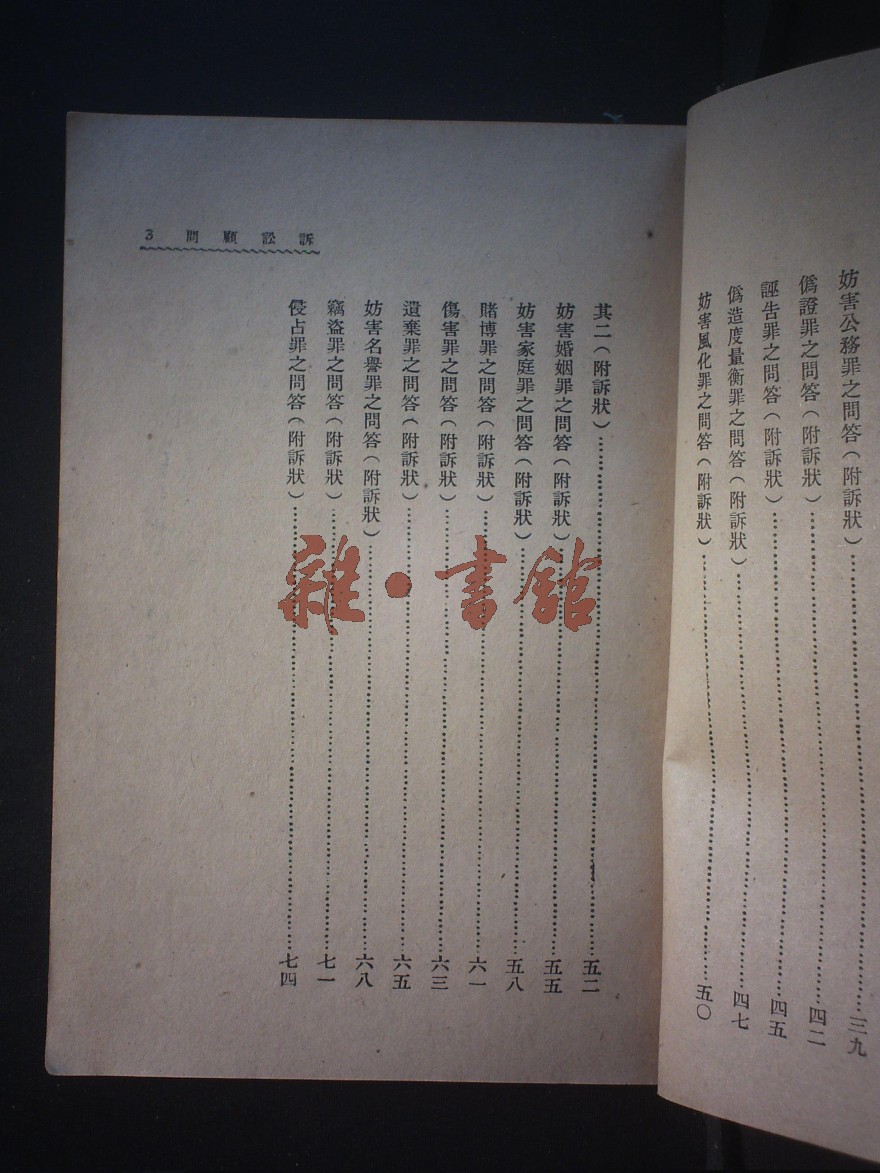 妨害公務罪之問答(附訴狀)……三九
僞證罪之問答(附訴狀)……四二
誣告罪之問答(附訴狀)……四五
僞造度量衡罪之問答(附訴狀)……四七
妨害風化罪之問答(附訴狀)……五〇
3 問顧訟訴
其二(附訴狀)……五二
妨害婚姻罪之問答(附訴狀)……五五
妨害家庭罪之問答(附訴狀)……五八
賭博罪之問答(附訴狀)……六一
傷害罪之問答(附訴狀)……六三
遺棄罪之問答(附訴狀)……六五
妨害名譽罪之問答(附訴狀)……六八
竊盜罪之問答(附訴狀)……七一
侵占罪之問答(附訴狀)……七四
雜·書館